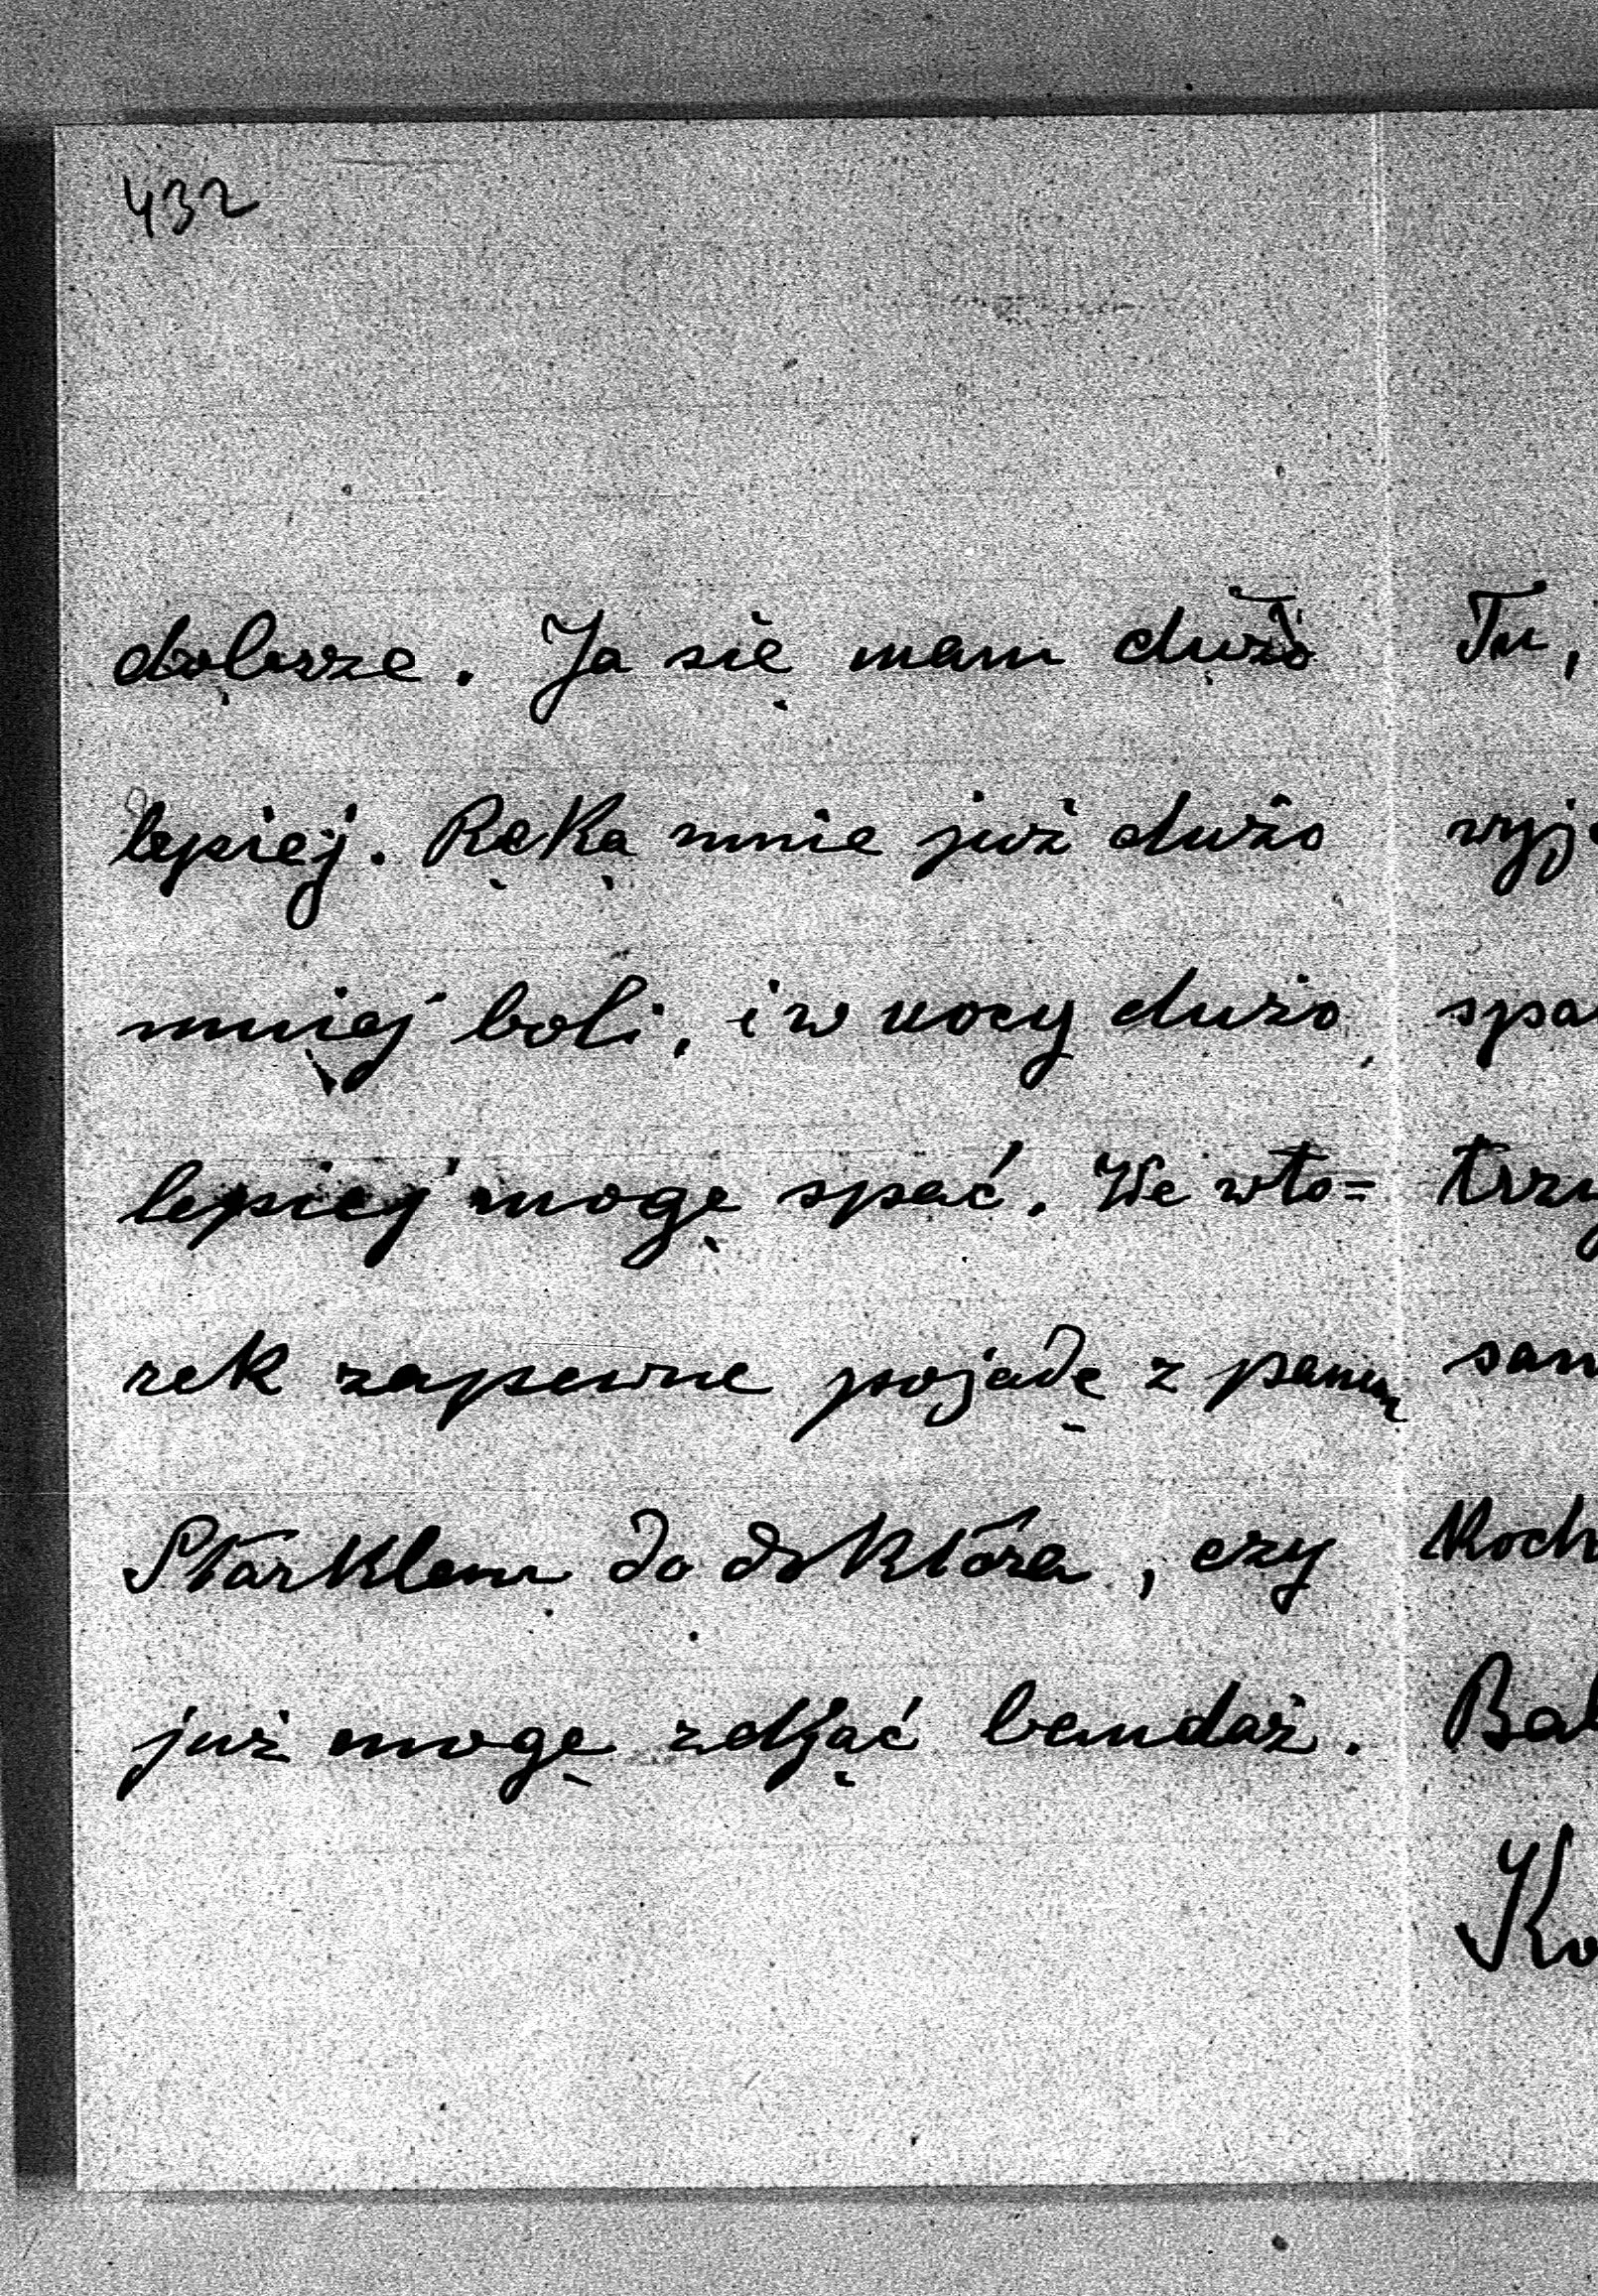 432
dobrze. Ja się mam dużo
lepiej. Ręka mnie już dużo
mniej boli, i w nocy dużo
lepiej mogę spać. We wto=
rek zapewne pojadę z panem
Starklem do doktora, czy
już mogę zdjąć bandaż.
Tu,
wyje
spa
trzy
sam
Koch
Bab
Ko